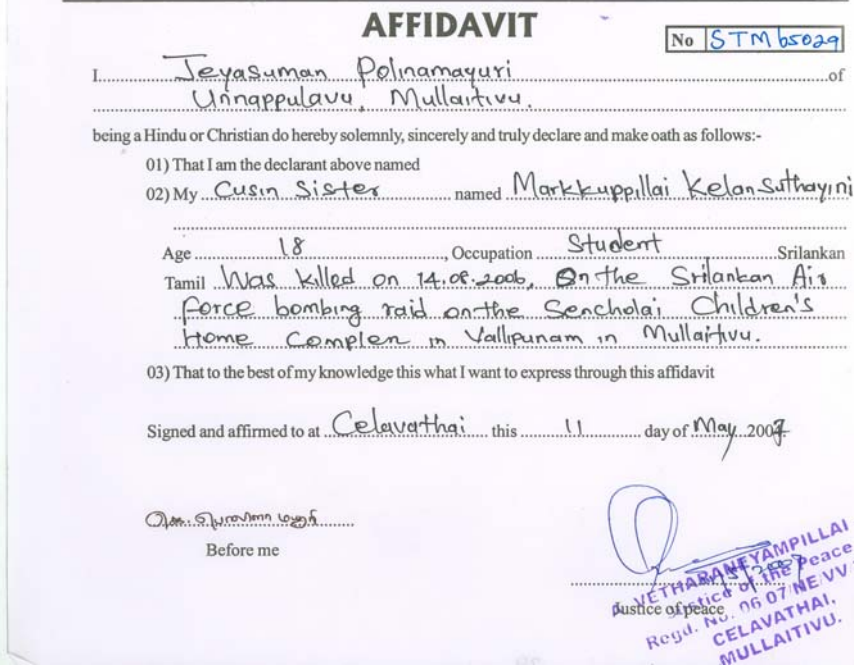 AFFIDAVIT
No STM 65029
I Jeyasuman Polinamayuri of
Unnappulavu, Mullaitivu.
being a Hindu or Christian do hereby solemnly, sincerely and truly declare and make oath as follows:-
01) That I am the declarant above named
02) My Cusin Sister named Markkuppillai Kelansuthayini
Age 18, Occupation Student Srilankan
Tamil Was killed on 14.08.2006, On the Srilankan Air
force bombing raid on the Sencholai Children's
Home Complen in Vallipunam in Mullaitivu.
03) That to the best of my knowledge this what I want to express through this affidavit
Signed and affirmed to at Celavathai this 11 day of May 2007.
Before me
Justice of peace
VETHARANEYAMPILLAI
Justice of the Peace
Regd. No. 06 07/NE/VV/
CELAVATHAI,
MULLAITIVU.